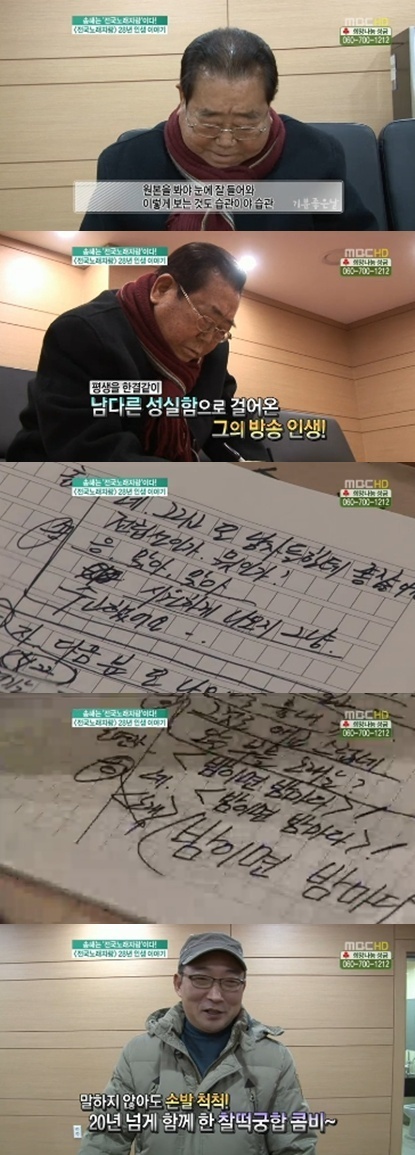 송해는 '전국노래자랑'이다!
<전국노래자랑> 28년 인생 이야기
MBC HD
희망나눔 성금
060-700-1212
원본을 봐야 눈에 잘 들어와
이렇게 보는 것도 습관이야 습관
기분 좋은 날
송해는 '전국노래자랑'이다!
<전국노래자랑> 28년 인생 이야기
MBC HD
희망나눔 성금
060-700-1212
평생을 한결같이
남다른 성실함으로 걸어온
그의 방송 인생!
송해는 '전국노래자랑'이다!
<전국노래자랑> 28년 인생 이야기
MBC HD
희망나눔 성금
060-700-1212
응 맞아, 맞아
시원하게 나오지 그냥.
수고했어요
자, 다음 분
송해는 '전국노래자랑'이다!
<전국노래자랑> 28년 인생 이야기
MBC HD
희망나눔 성금
060-700-1212
<밤이면 밤마다>!
네. <밤이면 밤마다>!
밤이면 밤마다
송해는 '전국노래자랑'이다!
<전국노래자랑> 28년 인생 이야기
MBC HD
희망나눔 성금
060-700-1212
말하지 않아도 손발 척척!
20년 넘게 함께 한 찰떡궁합 콤비~